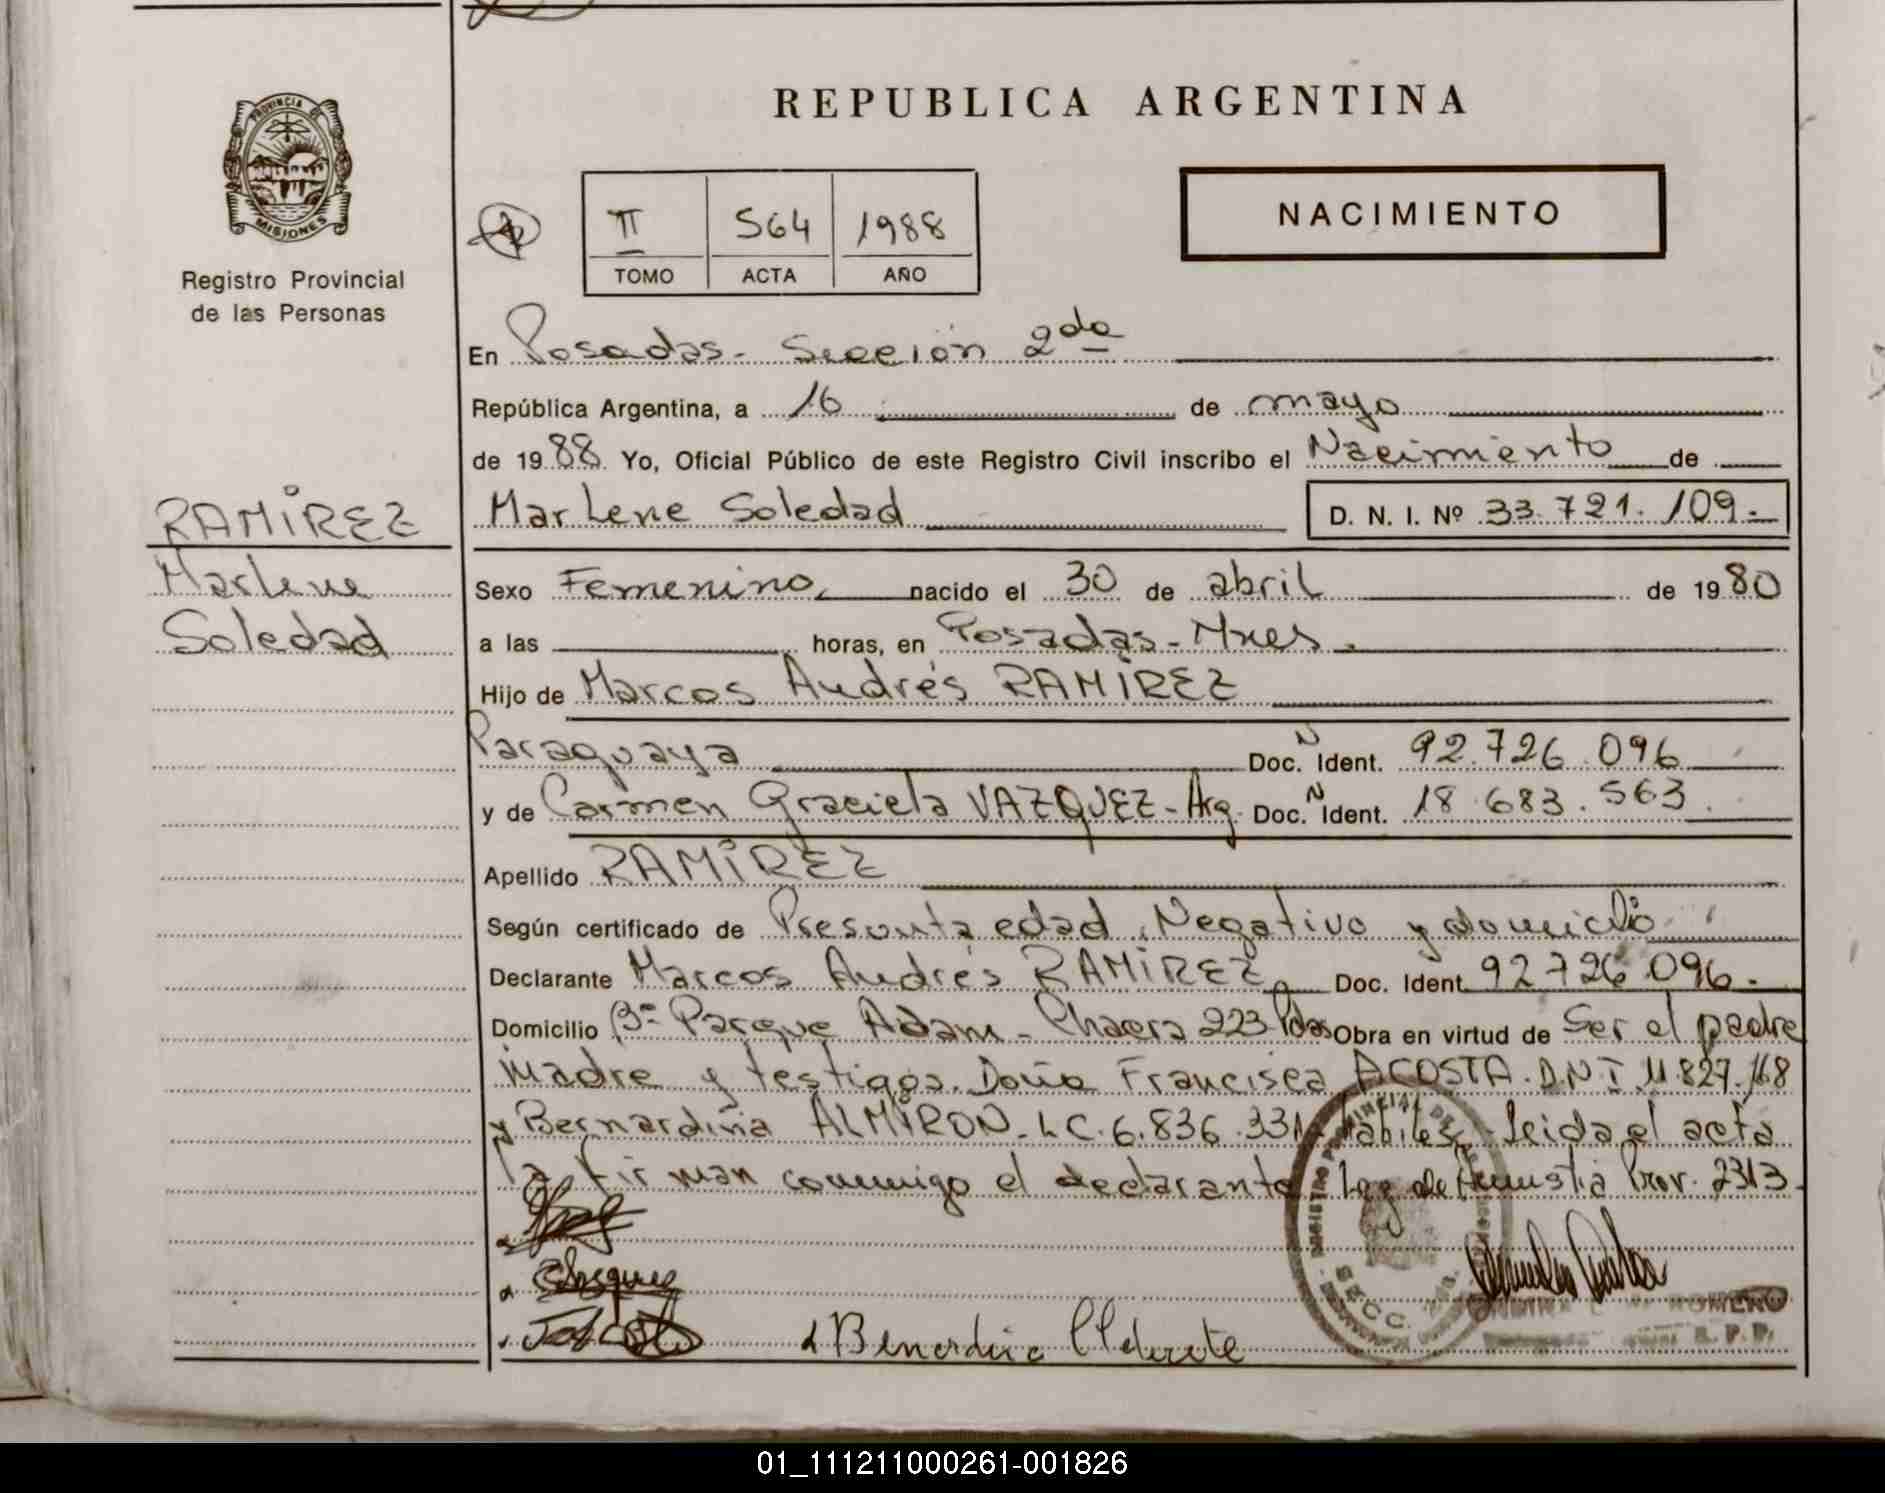 REPUBLICA ARGENTINA
PROVINCIA DE
MISIONES
Registro Provincial
de las Personas
II 564 1988
TOMO ACTA AÑO
NACIMIENTO
En Posadas - Sección 2da
República Argentina, a 16 de mayo
de 1988 Yo, Oficial Público de este Registro Civil inscribo el Nacimiento de
RAMIREZ
Marlene
Soledad
Marlene Soledad D. N. I. Nº 33.721.109.-
Sexo Femenino, nacido el 30 de abril de 1980
a las horas, en Posadas - Mnes.
Hijo de Marcos Andrés RAMIREZ
Paraguaya Doc. N Ident. 92.726.096
y de Carmen Graciela VAZQUEZ - Arg. Doc. N Ident. 18.683.563.
Apellido RAMIREZ
Según certificado de Presunta edad, Negativo y domicilio
Declarante Marcos Andrés RAMIREZ Doc. Ident. 92726.096.
Domicilio Bº Parque Adam - Chacra 223 Pdas Obra en virtud de Ser el padre
madre y testigos. Doña Francisca ACOSTA. D.N.I 11.827.168
y Bernardina ALMIRON - LC. 6.836.331 - habiles - leida el acta
la firman conmigo el declarante Ley de Amnistia Prov. 2313.
SECC.
ROMERO
R. P. P.
01_111211000261-001826